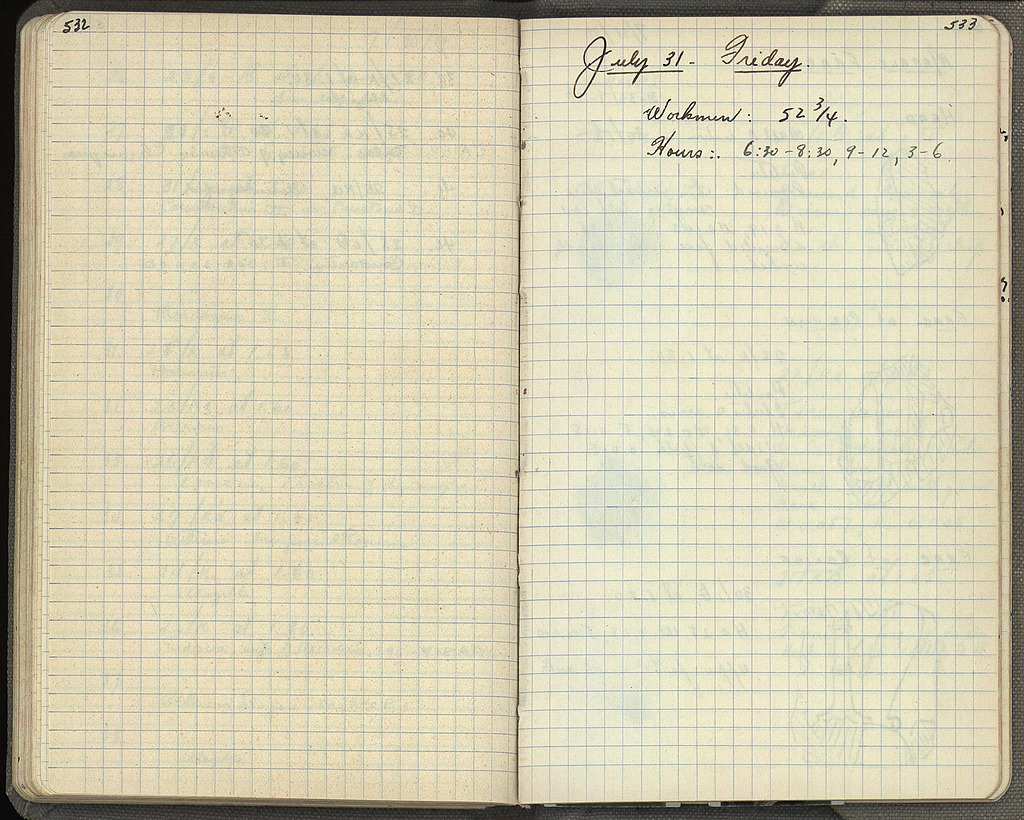 532
533
July 31 - Friday.
Workmen: 52 3/4.
Hours:. 6:30-8:30, 9-12, 3-6.